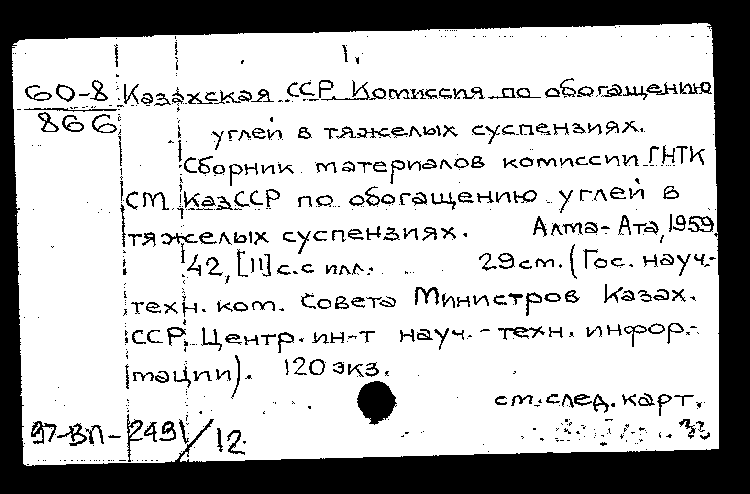 1.
60-8 Казахская ССР. Комиссия по обогащению
866 углей в тяжелых суспензиях.
Сборник материалов комиссии ГНТК
СМ КазССР по обогащению углей в
тяжелых суспензиях. Алма-Ата, 1959.
42, [11] с. с илл. 29 см. (Гос. науч.-
техн. ком. Совета Министров Казах.
ССР. Центр. ин-т науч.-техн. инфор-
мации). 120 экз.
см. след. карт.
97-ВП-2491/12